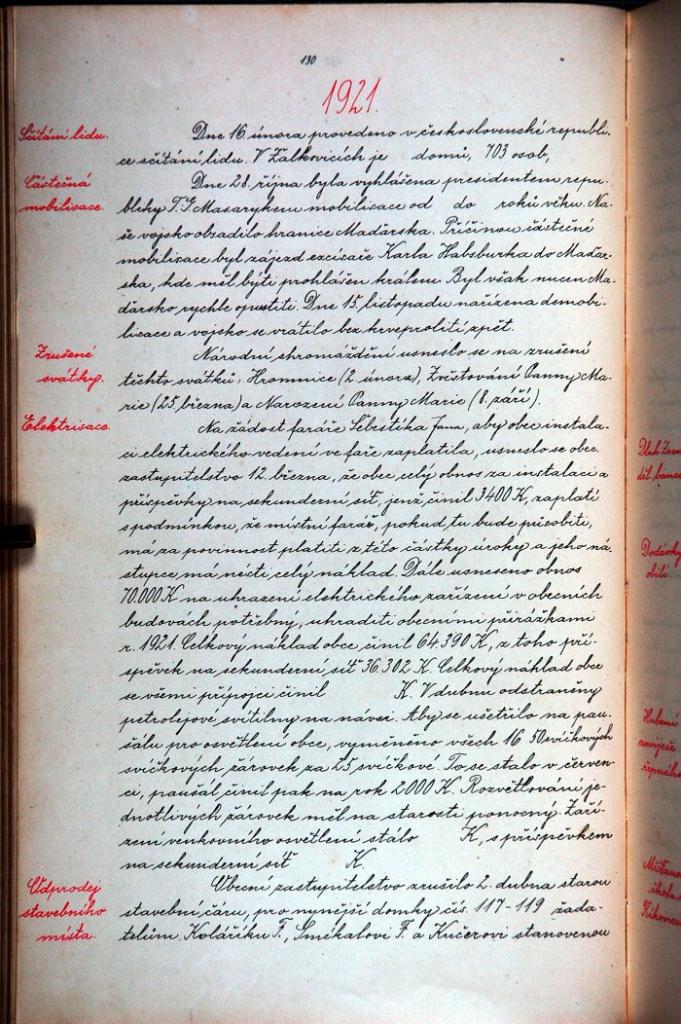 130
1921.
Sčítání lidu.
Dne 16. února provedeno v československé republi-
ce sčítání lidu. V Žalkovicích je domů, 703 osob,
Částečná
mobilisace.
Dne 28. října byla vyhlášena presidentem repu-
bliky T. G. Masarykem mobilisace od do roků věku. Na-
še vojsko obsadilo hranice Maďarska. Příčinou částečné
mobilisace byl zájezd excísaře Karla Habsburka do Maďar-
ska, kde měl býti prohlášen králem. Byl však nucen Ma-
ďarsko rychle opustiti. Dne 15. listopadu nařízena demobi-
lisace a vojsko se vrátilo bez krveprolití zpět.
Zrušené
svátky.
Národní shromáždění usneslo se na zrušení
těchto svátků: Hromnice (2. února), Zvěstování Panny Ma-
rie (25. března) a Narození Panny Marie (8. září).
Elektrisace.
Na žádost faráře Šebestíka Jana, aby obec instala-
ci elektrického vedení ve faře zaplatila, usneslo se obec.
zastupitelstvo 12. března, že obec celý obnos za instalaci a
příspěvky na sekunderní síť, jenž činil 3400 K, zaplatí
s podmínkou, že místní farář, pokud tu bude působiti,
má za povinnost platiti z této částky úroky a jeho ná-
stupce má nésti celý náklad. Dále usneseno obnos
70.000 K na uhrazení elektrického zařízení v obecních
budovách potřebný, uhraditi obecními přirážkami
r. 1921. Celkový náklad obce činil 64.390 K, z toho pří-
spěvek na sekunderní síť 36.302 K. Celkový náklad obce
se všemi přípojci činil K. V dubnu odstraněny
petrolejové svítilny na návsi. Aby se ušetřilo na pau-
šálu pro osvětlení obce, vyměněno všech 16 50 svíčkových
svíčkových žárovek za 25 svíčkové. To se stalo v červen-
ci, paušál činil pak na rok 2000 K. Rozsvětlování je-
dnotlivých žárovek měl na starosti ponocný. Zaří-
zení venkovního osvětlení stálo K, s příspěvkem
na sekunderní síť K.
Odprodej
stavebního
místa.
Obecní zastupitelstvo zrušilo 2. dubna starou
stavební čáru, pro nynější domky čís. 117-119 žada-
telům Koláříku F., Smékalovi F. a Kučerovi stanovenou
díl. banc
Dodávky
obilí
Hubení
řepného